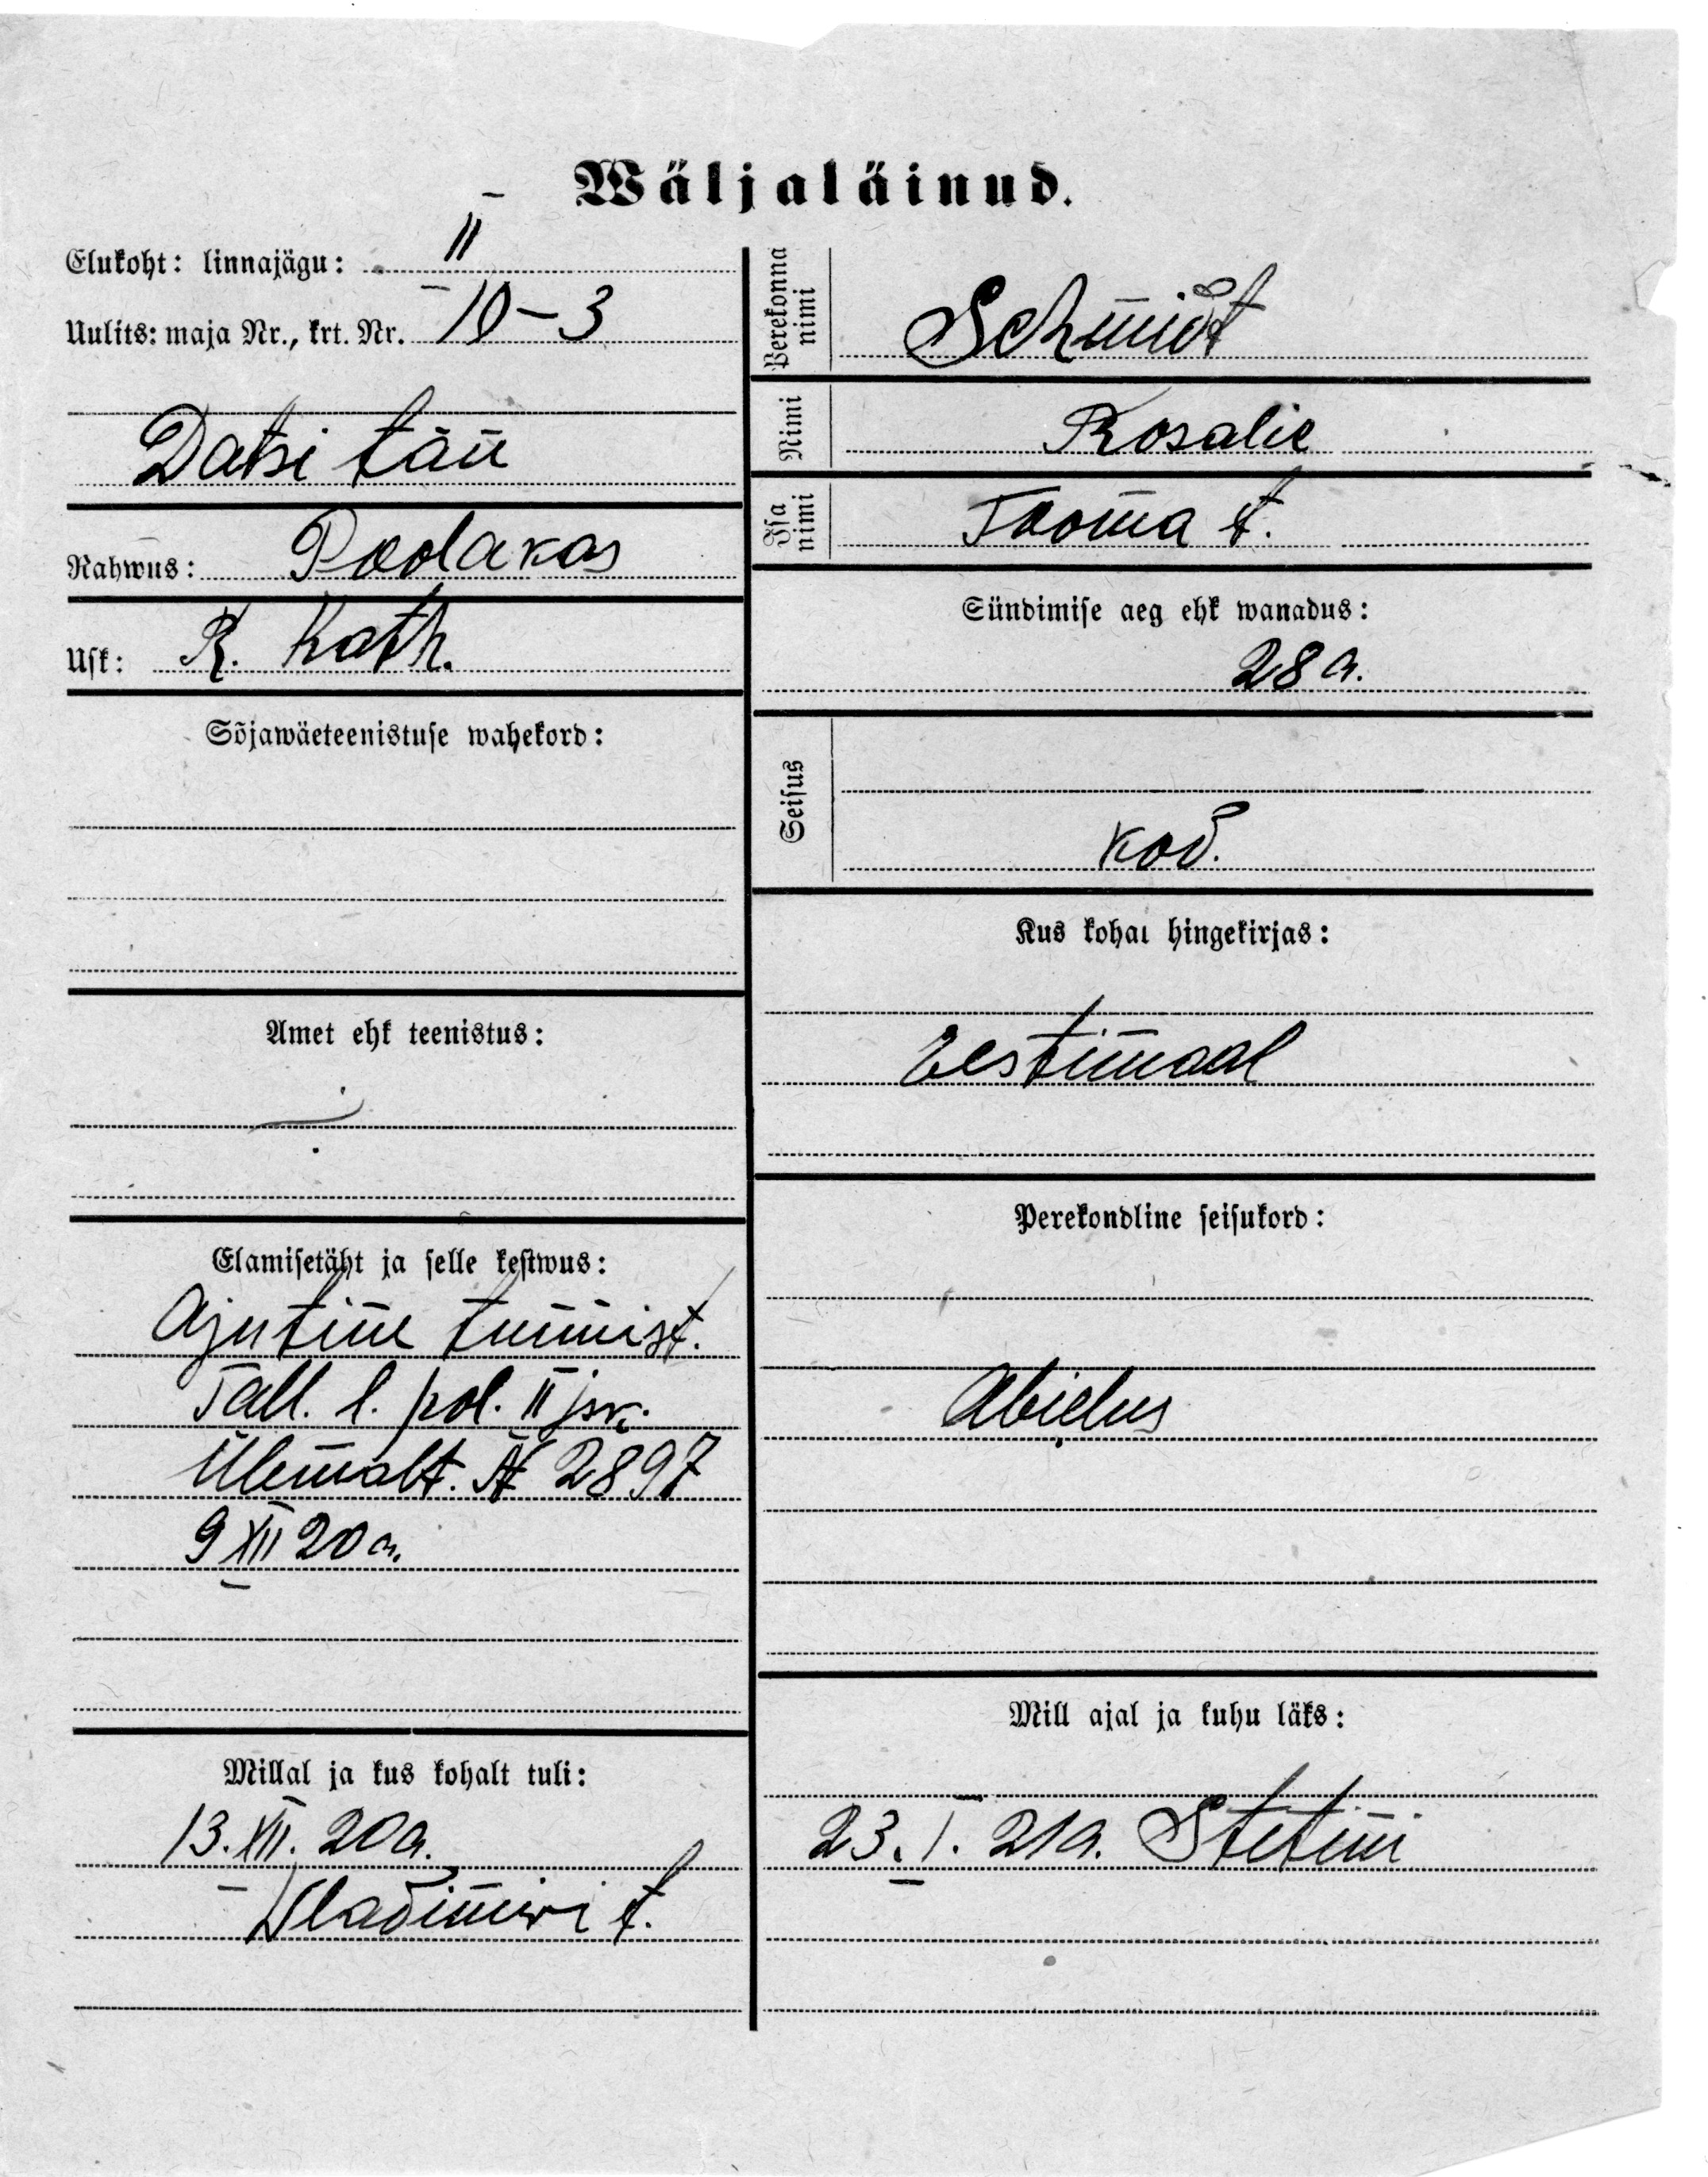 Wäljaläinud.
Elukoht: linnajägu: II
Uulits: maja Nr., krt. Nr. 10-3
Datsi tän
Rahwus: Poolakas
Usk: R. Kath.
Sõjawäeteenistuse wahekord:
Amet ehk teenistus:
Elamisetäht ja selle kestwus:
Ajutine tunnist.
Tall. l. pol. II jsk.
Ülemalt. № 2897
9 XII 20 a.
Millal ja kus kohalt tuli:
13. XII. 20 a.
Wladimiri t.
Perekonna nimi Schmidt
Nimi Rosalie
Isa nimi Tooma t.
Sündimise aeg ehk wanadus:
28 a.
Seisus
kod.
Kus kohal hingekirjas:
Eestimaal
Perekondline seisukord:
Abielus
Mill ajal ja kuhu läks:
23. I. 21 a. Stetini